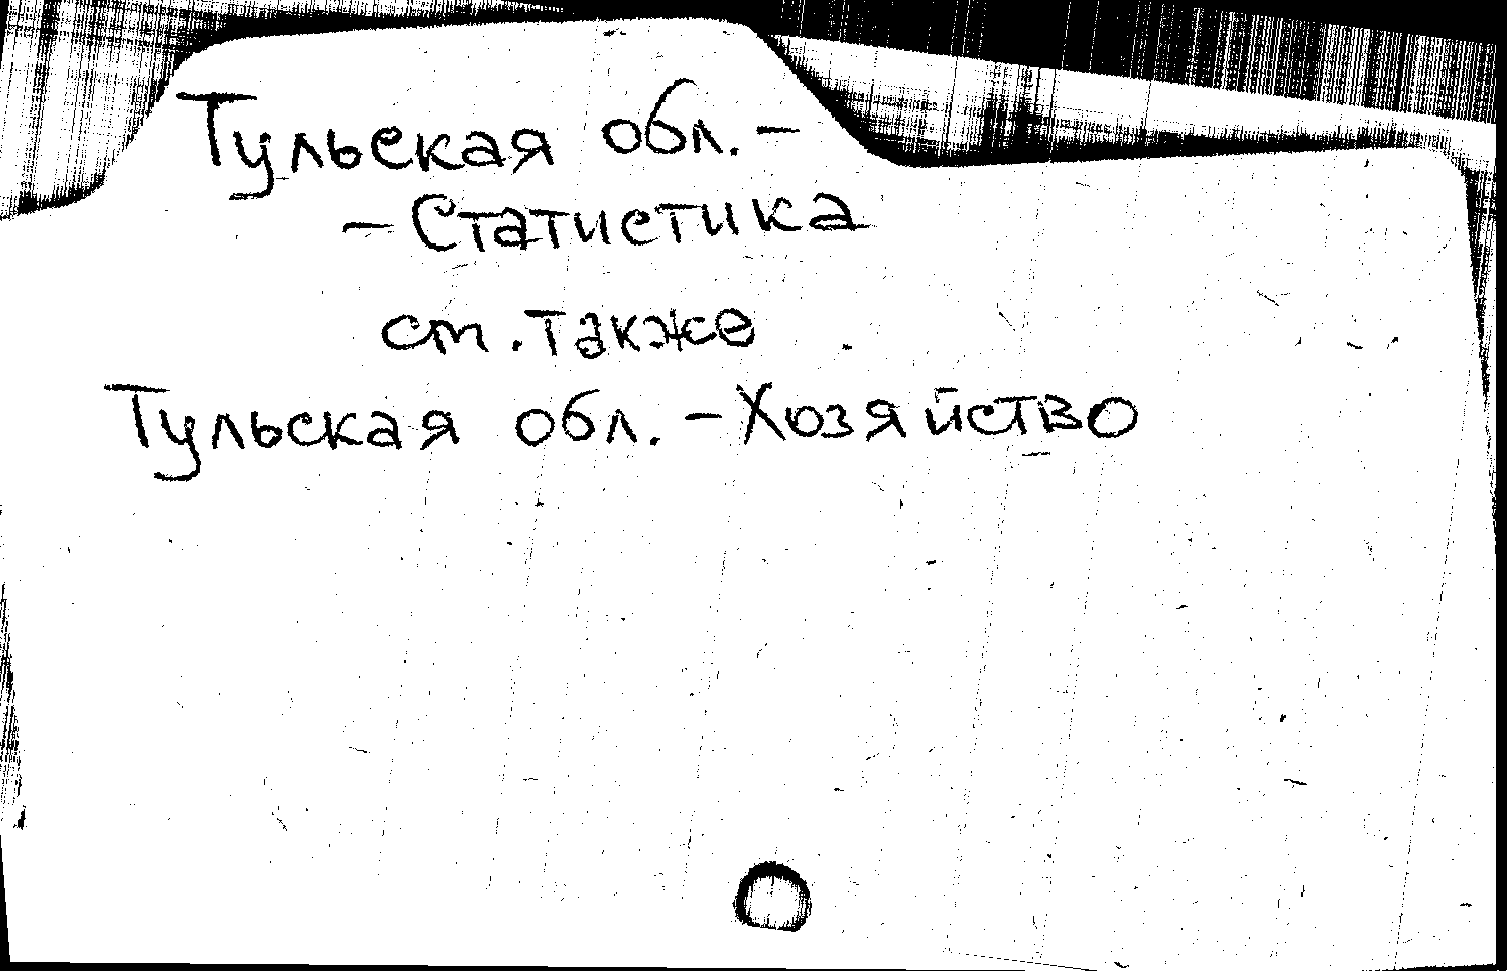 Тульская обл. -
- Статистика
см. также
Тульская обл. - Хозяйство